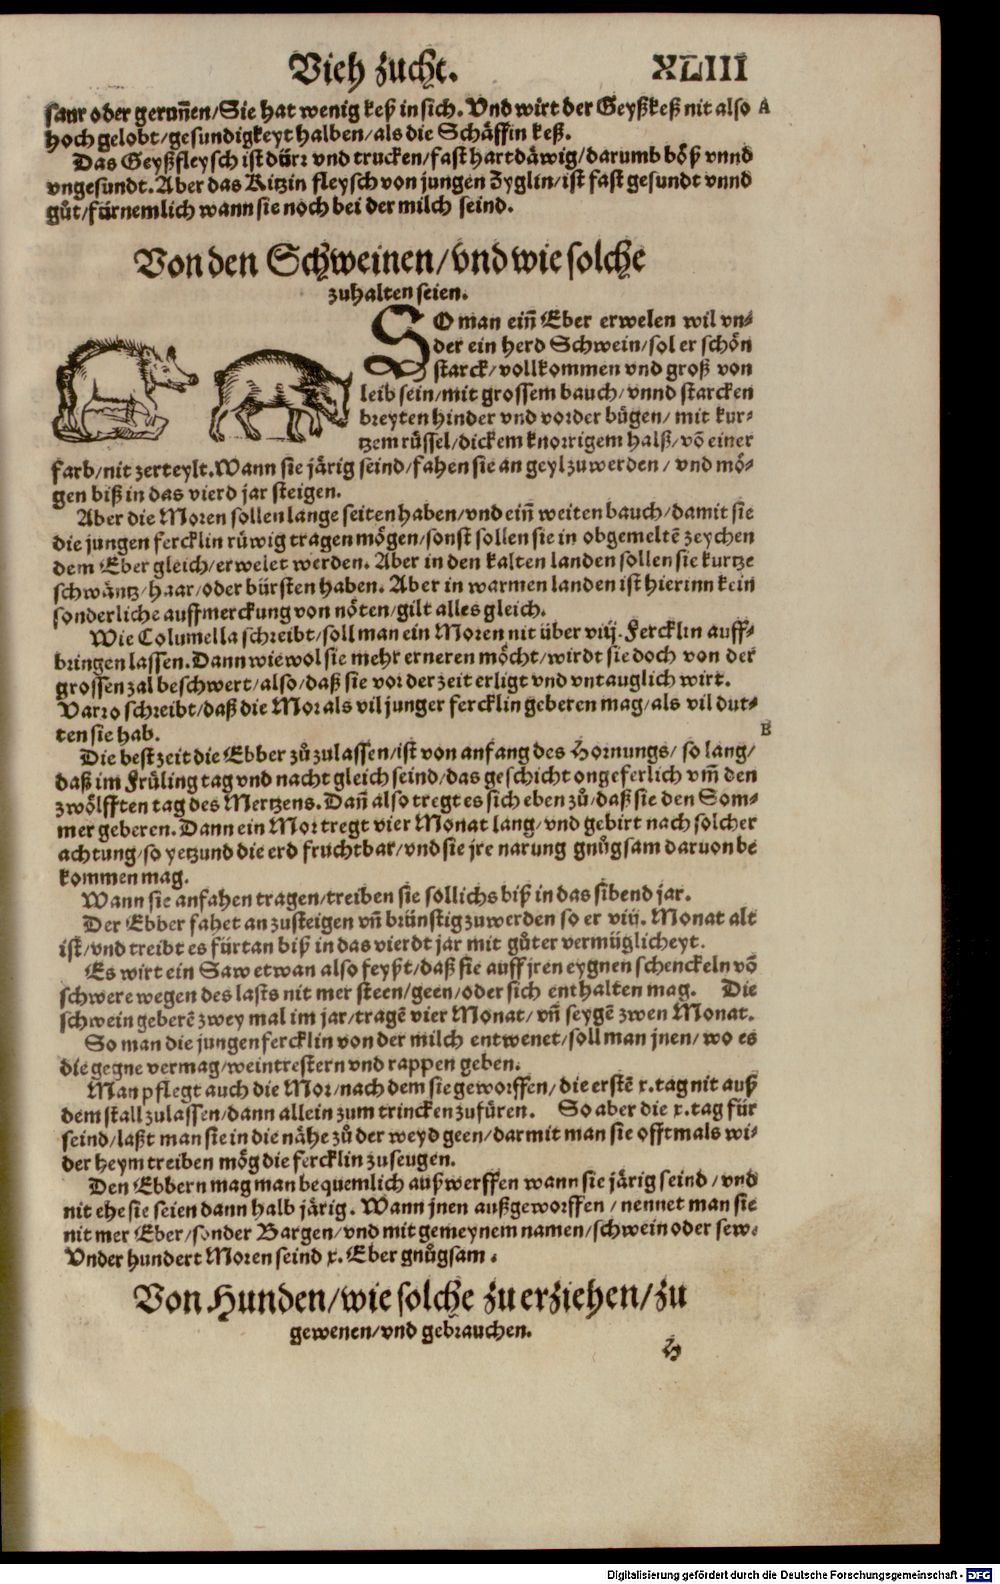 Vieh zucht. XLIII
saur oder gerunnẽ/Sie hat wenig keß in sich. Vnd wirt der Geyßkeß nit also A
hoch gelobt/gesundigkeyt halben/als die Schäffin keß.
Das Geyßfleysch ist dürr vnd trucken/fast hartdäwig/darumb böß vnnd
vngesundt. Aber das Kitzin fleysch von jungen Zyglin/ist fast gesundt vnnd
gůt/fürnemlich wann sie noch bei der milch seind.
Von den Schweinen/vnd wie solche
zuhalten seien.
SO man eiñ Eber erwelen wil vn-
der ein herd Schwein/sol er schön
starck/vollkommen vnd groß von
leib sein/mit grossem bauch/vnnd starcken
breyten hinder vnd vorder bügen/mit kur-
tzem rüssel/dickem knorrigem halß/võ einer
farb/nit zerteylt. Wann sie järig seind/fahen sie an geyl zu werden/vnd mö-
gen biß in das vierd jar steigen.
Aber die Moren sollen lange seiten haben/vnd eiñ weiten bauch/damit sie
die jungen fercklin rüwig tragen mögen/sonst sollen sie in obgemeltẽ zeychen
dem Eber gleich/erwelet werden. Aber in den kalten landen sollen sie kurtze
schwäntz/haar/oder bürsten haben. Aber in warmen landen ist hierinn kein
sonderliche auffmerckung von nöten/gilt alles gleich.
Wie Columella schreibt/soll man ein Moren nit über viij. Fercklin auff-
bringen lassen. Dann wiewol sie mehr erneren möcht/wirdt sie doch von der
grossen zal beschwert/also/daß sie vor der zeit erligt vnd vntauglich wirt.
Varro schreibt/daß die Mor als vil junger fercklin geberen mag/als vil dut-
ten sie hab. B
Die best zeit die Ebber zů zulassen/ist von anfang des Hornungs/so lang/
daß im Früling tag vnd nacht gleich seind/das geschicht ongeferlich vm̃ den
zwölfften tag des Mertzens. Dañ also tregt es sich eben zů/daß sie den Som-
mer geberen. Dann ein Mor tregt vier Monat lang/vnd gebirt nach solcher
achtung/so yetzund die erd fruchtbar/vnd sie jre narung gnůgsam daruon be
kommen mag.
Wann sie anfahen tragen/treiben sie sollichs biß in das sibend jar.
Der Ebber fahet an zusteigen vñ brünstig zuwerden so er viij. Monat alt
ist/vnd treibt es fürtan biß in das vierdt jar mit gůter vermüglicheyt.
Es wirt ein Saw etwan also feyßt/daß sie auff jren eygnen schenckeln võ
schwere wegen des lasts nit mer steen/geen/oder sich enthalten mag. Die
schwein geberẽ zwey mal im jar/tragẽ vier Monat/vñ seygẽ zwen Monat.
So man die jungen fercklin von der milch entwenet/soll man jnen/wo es
die gegne vermag/weintrestern vnd rappen geben.
Man pflegt auch die Mor/nach dem sie geworffen/die erstẽ x. tag nit auß
dem stall zulassen/dann allein zum trincken zufüren. So aber die x. tag für
seind/laßt man sie in die nähe zů der weyd geen/darmit man sie offtmals wi-
der heym treiben mög die fercklin zu seugen.
Den Ebbern mag man bequemlich außwerffen wann sie järig seind/vnd
nit ehe sie seien dann halb järig. Wann jnen außgeworffen/nennet man sie
nit mer Eber/sonder Bargen/vnd mit gemeynem namen/schwein oder sew.
Vnder hundert Moren seind x. Eber gnůgsam.
Von Hunden/wie solche zu erziehen/zu
gewenen/vnd gebrauchen.
H
Digitalisierung gefördert durch die Deutsche Forschungsgemeinschaft - DFG